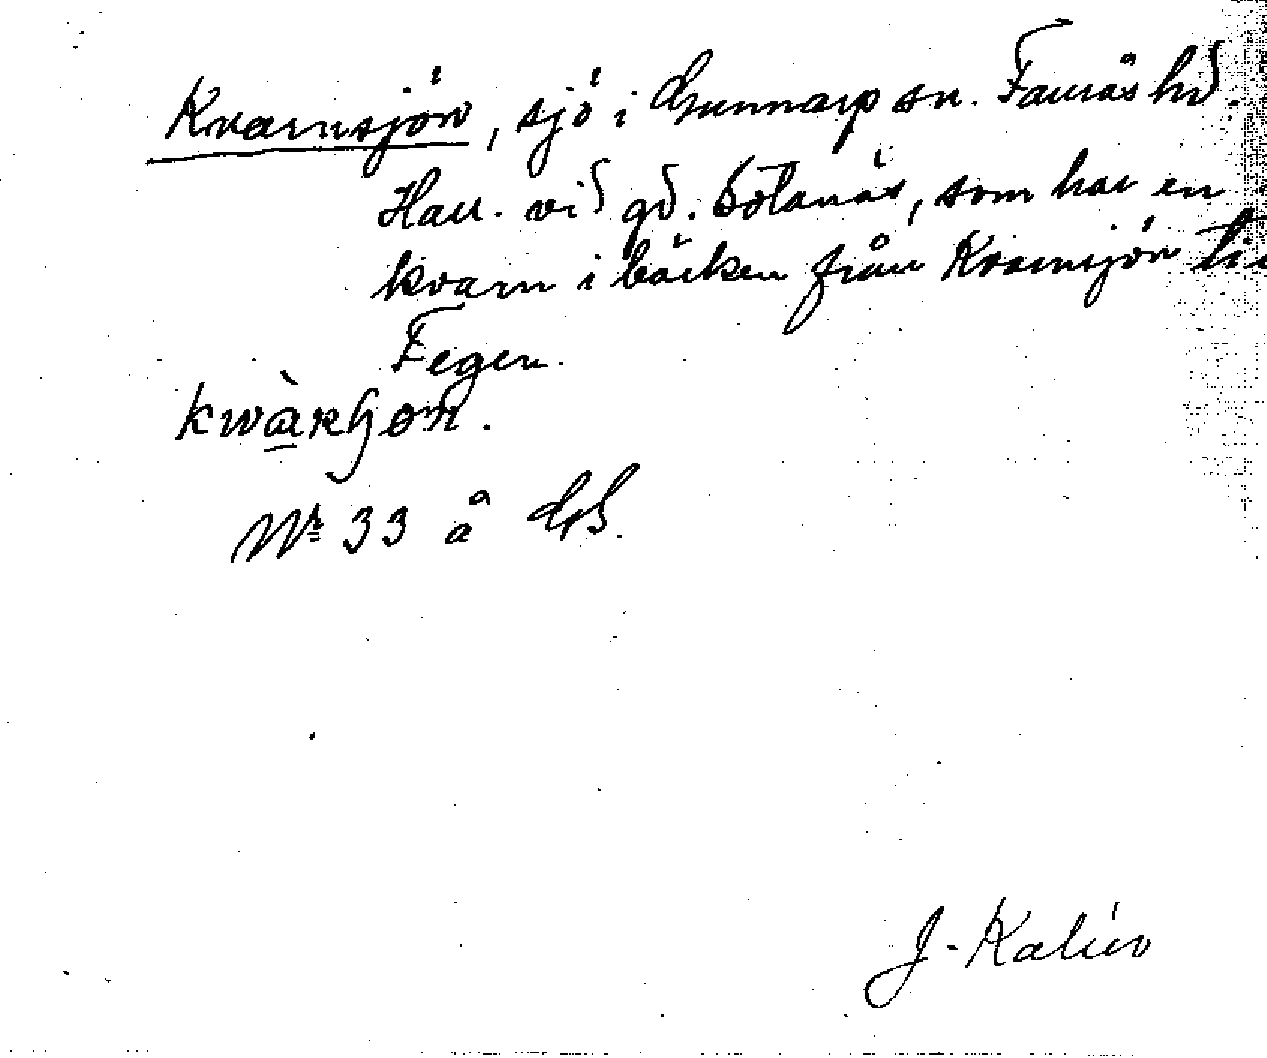 Kvarnsjön, sjö i Gunnarp sn. Faurås hd.
Hall. vid gd. Sötanäs, som har en
kvarn i bäcken från Kvarnsjön till
Fegen.
Nr 33 å GS.
J. Kalén